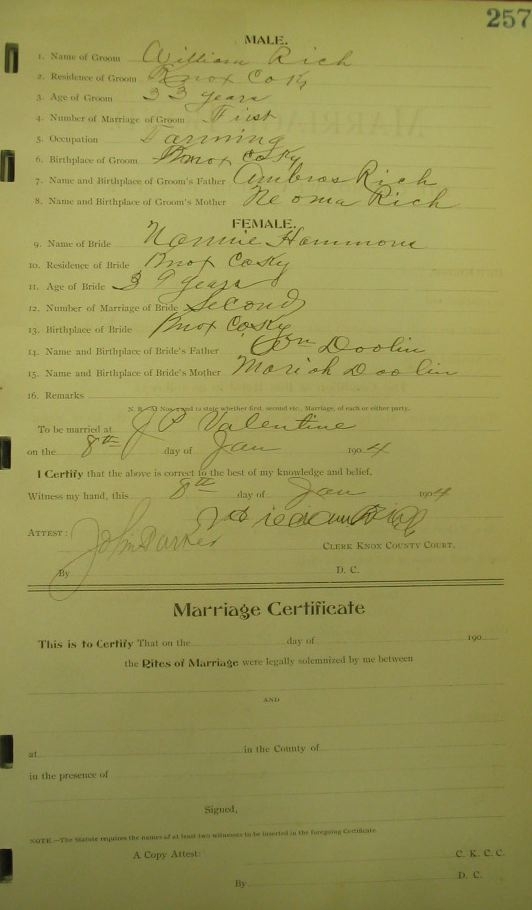 257
MALE.
1. Name of Groom William Rich
2. Residence of Groom Knox Co Ky
3. Age of Groom 33 years
4. Number of Marriage of Groom First
5. Occupation Farming
6. Birthplace of Groom Knox Co Ky
7. Name and Birthplace of Groom's Father Ambros Rich
8. Name and Birthplace of Groom's Mother Neoma Rich
FEMALE.
9. Name of Bride Nannie Hammons
10. Residence of Bride Knox Co Ky
11. Age of Bride 39 years
12. Number of Marriage of Bride Second
13. Birthplace of Bride Knox Co Ky
14. Name and Birthplace of Bride's Father Wm Doolin
15. Name and Birthplace of Bride's Mother Mariah Doolin
16. Remarks
N. B.—At Nos. 4 and 12 state whether first, second etc. Marriage, of each or either party.
To be married at J P Valentine
on the 8th day of Jan 1904
I Certify that the above is correct to the best of my knowledge and belief.
Witness my hand, this 8th day of Jan 1904
ATTEST: John Parker
CLERK KNOX COUNTY COURT.
By D. C.
Marriage Certificate
This is to Certify That on the day of 190
the Rites of Marriage were legally solemnized by me between
AND
at in the County of
in the presence of
Signed,
NOTE.—The Statute requires the names of at least two witnesses to be inserted in the foregoing Certificate.
A Copy Attest: C. K. C. C.
By D. C.